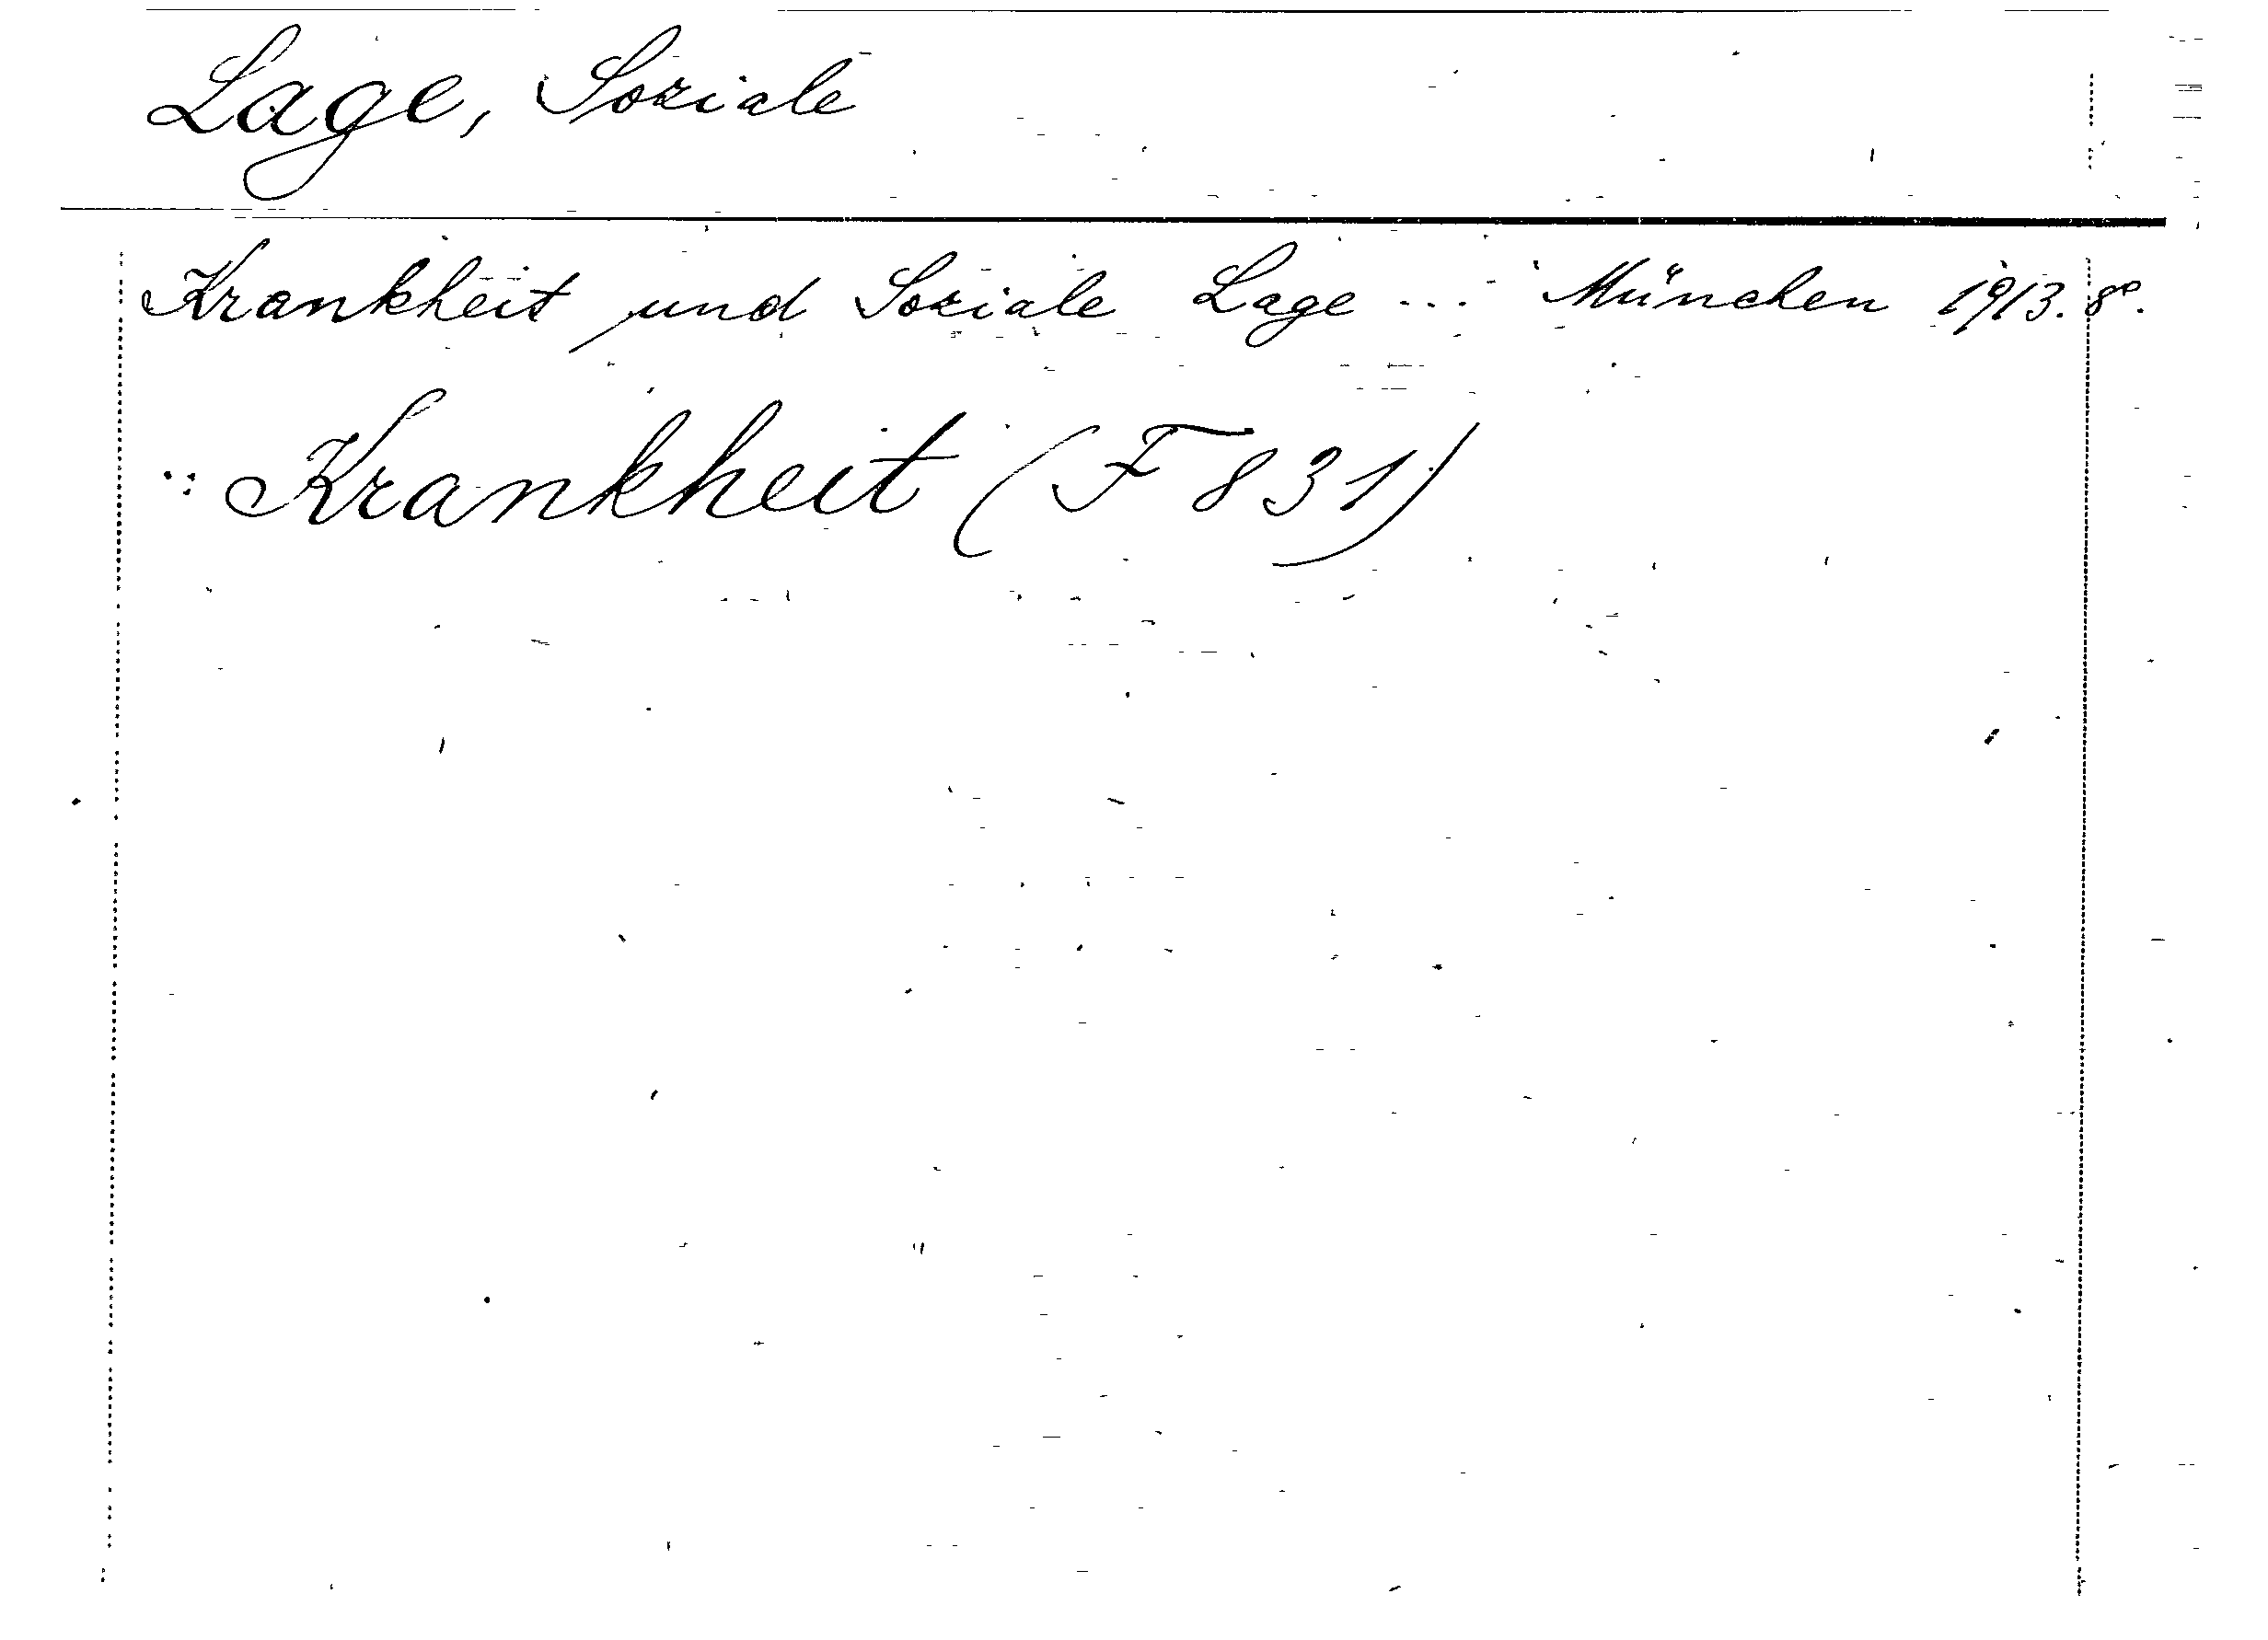 Lage, Soziale
Krankheit und Soziale Lage ... München 1913. 8°.
: Krankheit (F 831)